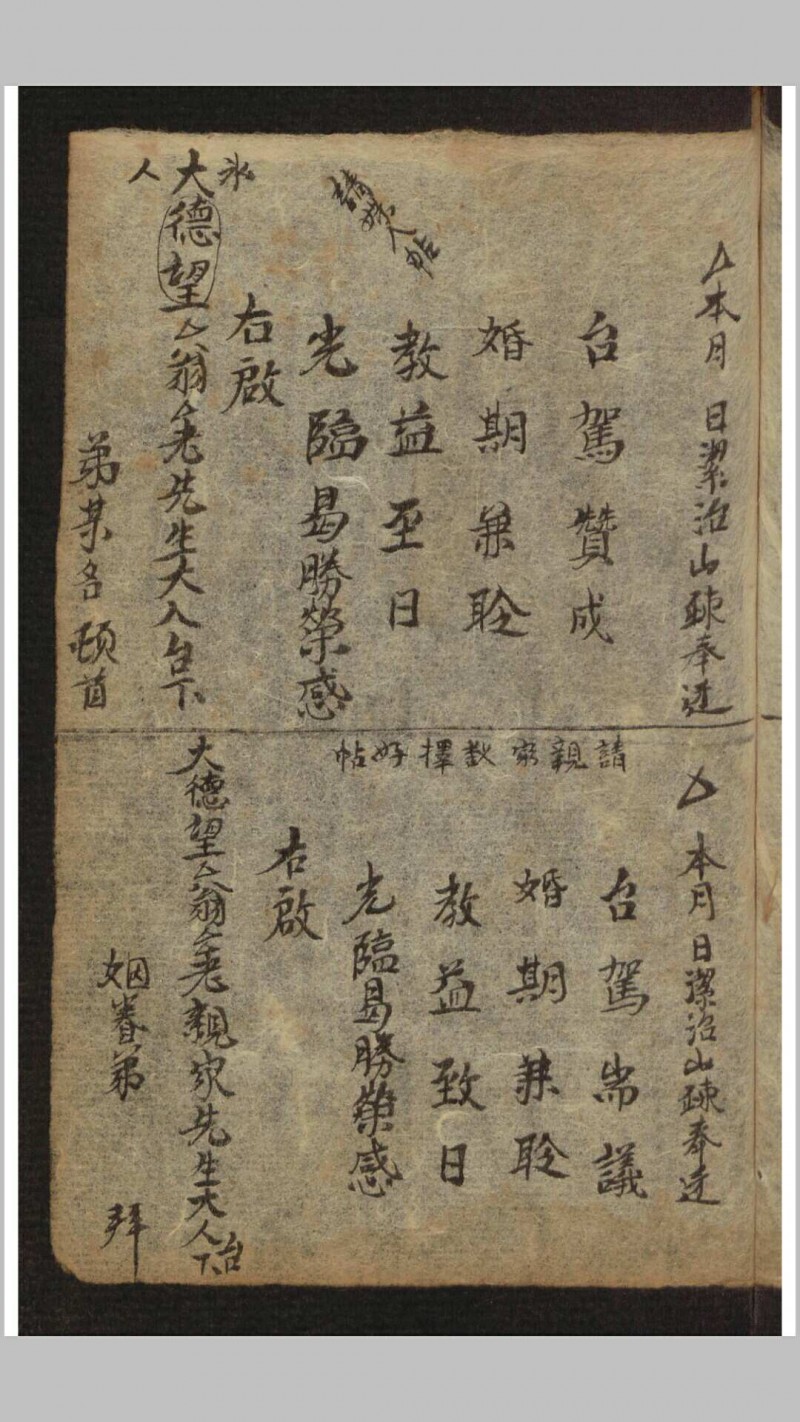 請媒人帖
△本月　日潔治山疎奉迓
台駕贊成
婚期兼聆
教益至日
光臨曷勝榮感
右啟
氷
大德望厶翁厶老先生大人台下
人
弟某名頓首
請親家教擇好帖
△本月　日潔治山疎奉迓
台駕耑議
婚期兼聆
教益致日
光臨曷勝榮感
右啟
大德望厶翁厶老親家先生大人台下
姻眷弟　拜